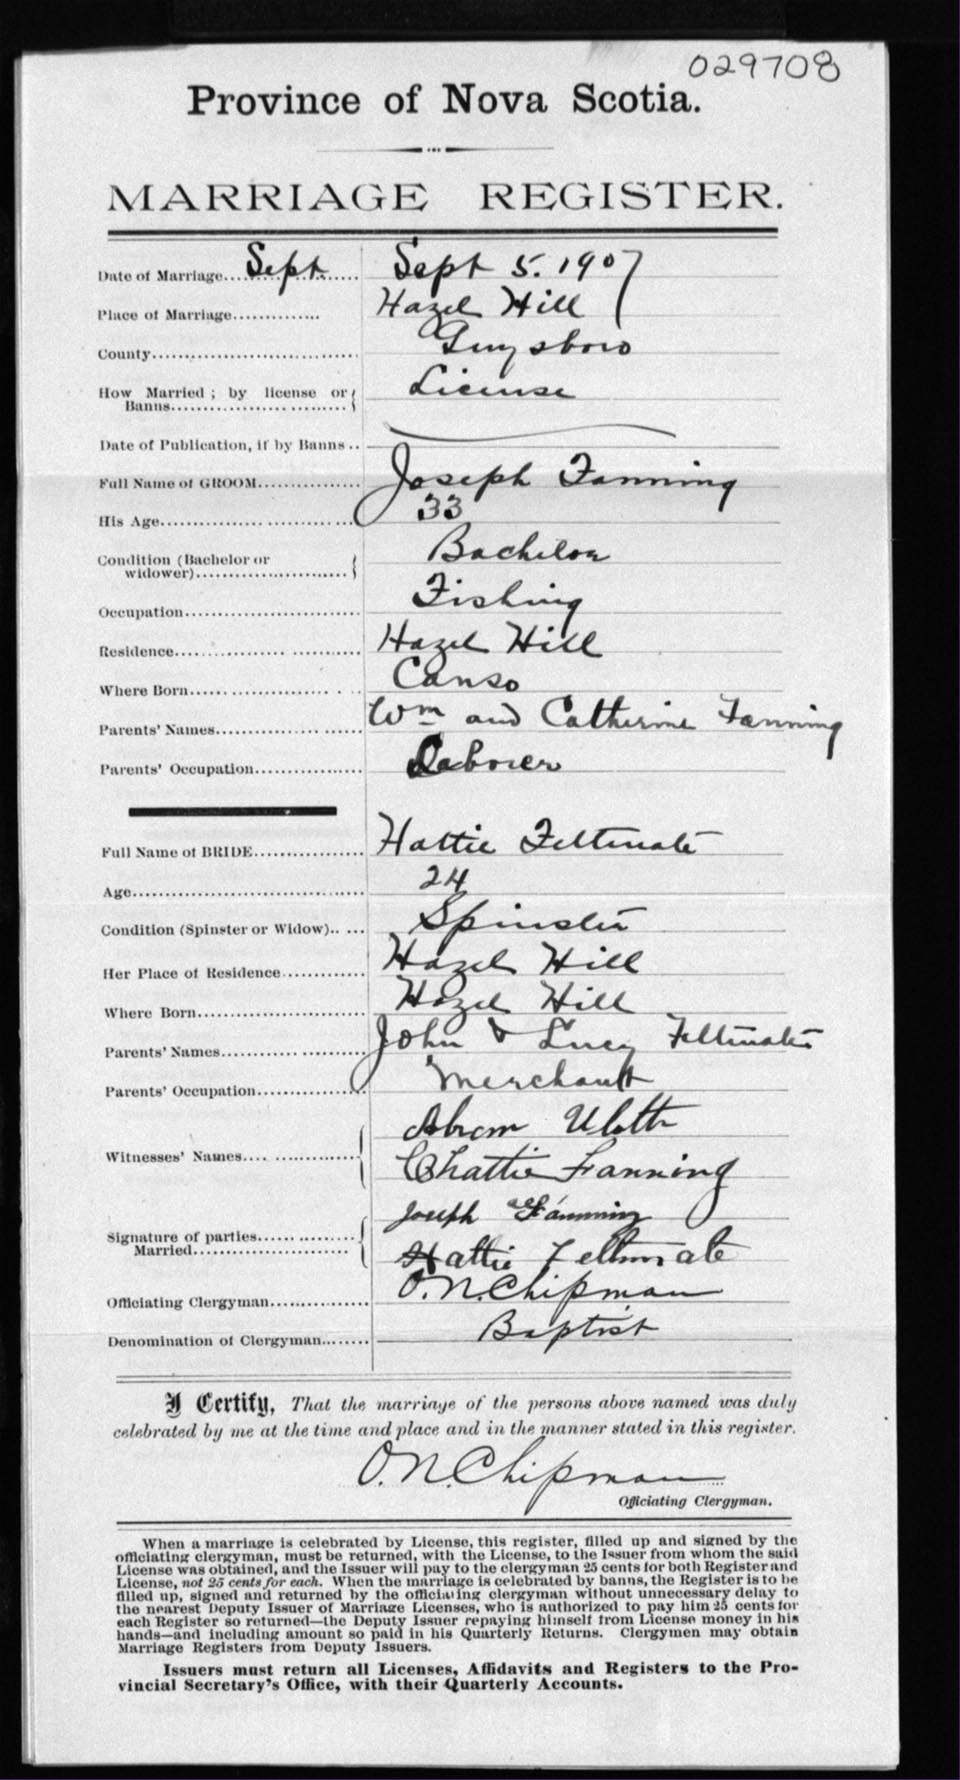 029708
Province of Nova Scotia.
MARRIAGE REGISTER.
Date of Marriage....Sept...... Sept 5. 1907
Place of Marriage............. Hazel Hill
County............................... Guysboro
How Married ; by license or Banns........................... License
Date of Publication, if by Banns ..
Full Name of GROOM............... Joseph Fanning
His Age............................. 33
Condition (Bachelor or widower)....................... Bachelor
Occupation.......................... Fishing
Residence........................... Hazel Hill
Where Born....................... Canso
Parents' Names..................... Wm and Catherine Fanning
Parents' Occupation................ Laborer
Full Name of BRIDE................ Hattie Feltmate
Age.................................. 24
Condition (Spinster or Widow).. ... Spinster
Her Place of Residence............ Hazel Hill
Where Born........................ Hazel Hill
Parents' Names..................... John & Lucy Feltmate
Parents' Occupation................ Merchant
Witnesses' Names.... ............. Abram
Chattie Fanning
Signature of parties Married....................... Joseph Fanning
Hattie Feltmate
Officiating Clergyman............... O. N. Chipman
Denomination of Clergyman........ Baptist
I Certify, That the marriage of the persons above named was duly
celebrated by me at the time and place and in the manner stated in this register.
O. N. Chipman
Officiating Clergyman.
When a marriage is celebrated by License, this register, filled up and signed by the
officiating clergyman, must be returned, with the License, to the Issuer from whom the said
License was obtained, and the Issuer will pay to the clergyman 25 cents for both Register and
License, not 25 cents for each. When the marriage is celebrated by banns, the Register is to be
filled up, signed and returned by the officiating clergyman without unnecessary delay to
the nearest Deputy Issuer of Marriage Licenses, who is authorized to pay him 25 cents for
each Register so returned—the Deputy Issuer repaying himself from License money in his
hands—and including amount so paid in his Quarterly Returns. Clergymen may obtain
Marriage Registers from Deputy Issuers.
Issuers must return all Licenses, Affidavits and Registers to the Pro-
vincial Secretary's Office, with their Quarterly Accounts.